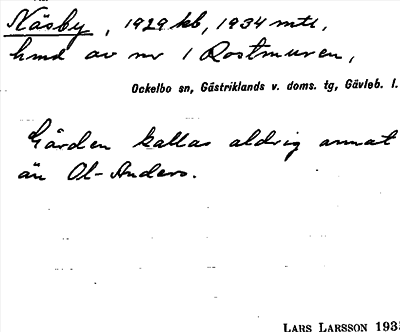 Näsby, 1929 kb, 1934 mtl,
hmd av nr 1 Rostmuren,
Ockelbo sn, Gästriklands v. doms. tg, Gävleb. l.
Gården kallas aldrig annat
än Ol-Anders.
LARS LARSSON 193